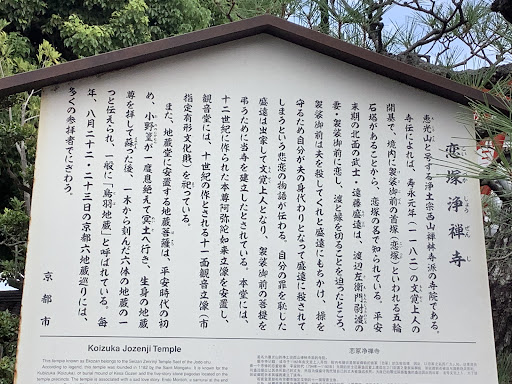 恋塚浄禅寺
こいづかじょうぜんじ
恵光山と号する浄土宗西山禅林寺派の寺院である。
寺伝によれば、寿永元年（一一八二）の文覚上人の
開基で、境内に袈裟御前の首塚（恋塚）といわれる五輪
石塔があることから、恋塚の名で知られている。平安
末期の北面の武士・遠藤盛遠は、渡辺左衛門尉渡の
妻・袈裟御前に恋し、渡と縁を切ることを迫ったところ、
袈裟御前は夫を殺してくれと盛遠にもちかけ、操を
守るため自分が夫の身代わりとなって盛遠に殺されて
しまうという悲恋の物語が伝わる。自分の罪を恥じた
盛遠は出家して文覚上人となり、袈裟御前の菩提を
弔うために当寺を建立したとされている。本堂には、
十二世紀に作られた本尊阿弥陀如来立像を安置し、
観音堂には、十世紀の作とされる十一面観音立像（市
指定有形文化財）を祀っている。
また、地蔵堂に安置する地蔵菩薩は、平安時代の初
め、小野篁が一度息絶えて冥土へ行き、生身の地蔵
尊を拝して蘇った後、一木から刻んだ六体の地蔵の一
つと伝えられ、一般に「鳥羽地蔵」と呼ばれている。毎
年、八月二十二、二十三日の京都六地蔵巡りには、
多くの参拝者でにぎわう。
京都市
Koizuka Jozenji Temple
This temple known as Ekozan belongs to the Seizan Zenrinji Temple Sect of the Jodo-shu.
According to legend, this temple was founded in 1182 by the Saint Mongaku. It is known for the
恋冢净禅寺